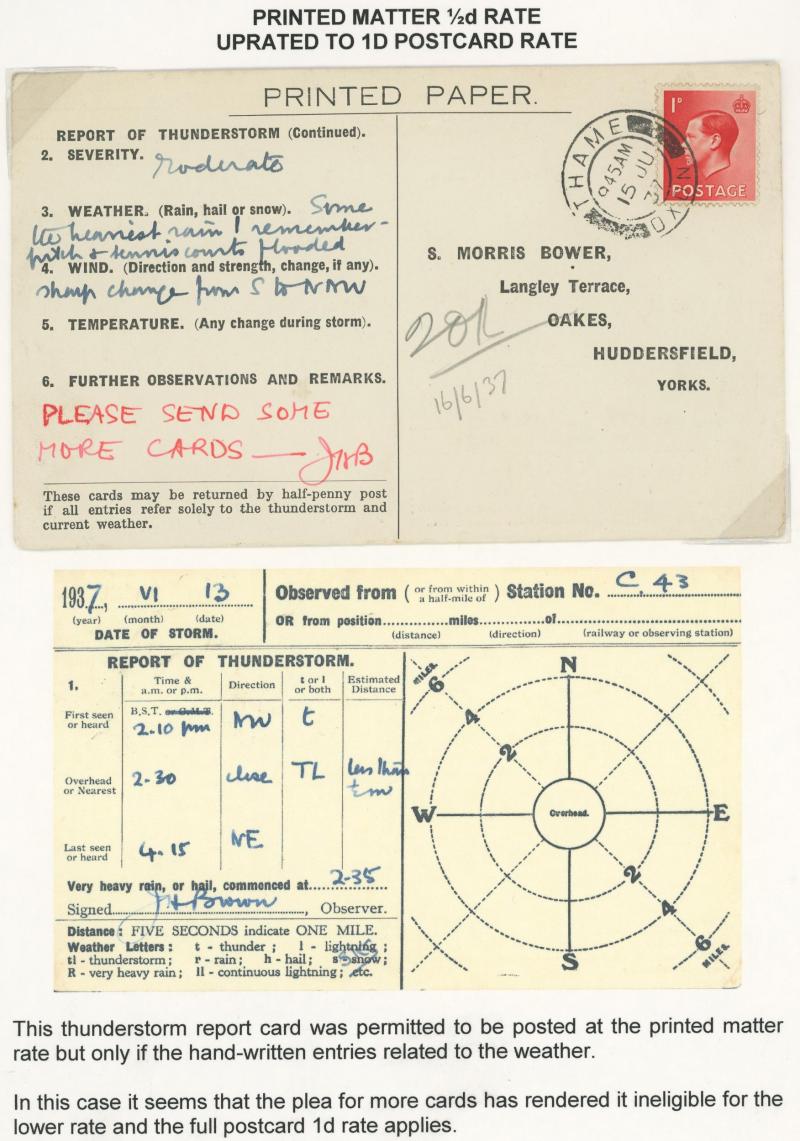 PRINTED MATTER ½d RATE
UPRATED TO 1D POSTCARD RATE
PRINTED PAPER.
REPORT OF THUNDERSTORM (Continued).
2. SEVERITY. Moderate
3. WEATHER. (Rain, hail or snow). Some
the heaviest rain I remember -
pitch & tennis courts flooded
4. WIND. (Direction and strength, change, if any).
sharp change from S to NNW
5. TEMPERATURE. (Any change during storm).
6. FURTHER OBSERVATIONS AND REMARKS.
PLEASE SEND SOME
MORE CARDS — JHB
These cards may be returned by half-penny post
if all entries refer solely to the thunderstorm and
current weather.
THAME
945AM
15 JU
37
OXON
1D
POSTAGE
S. MORRIS BOWER,
Langley Terrace,
OAKES,
HUDDERSFIELD,
YORKS.
16/6/37
1937, VI 13
(year) (month) (date)
DATE OF STORM.
Observed from ( or from within a half-mile of ) Station No. C. 43
OR from position..........miles..........of..........
(distance) (direction) (railway or observing station)
REPORT OF THUNDERSTORM.
1. Time & a.m. or p.m. Direction t or l or both Estimated Distance
First seen or heard B.S.T. or G.M.T. 2.10 pm NW t
Overhead or Nearest 2-30 close TL less than
Last seen or heard 4.15 NE
Very heavy rain, or hail, commenced at 2-35
Signed JH Brown, Observer.
Distance: FIVE SECONDS indicate ONE MILE.
Weather Letters: t - thunder; l - lightning;
tl - thunderstorm; r - rain; h - hail; s - snow;
R - very heavy rain; ll - continuous lightning; etc.
N
MILES.
6
4
2
W
Overhead.
E
2
4
6
MILES.
S
This thunderstorm report card was permitted to be posted at the printed matter
rate but only if the hand-written entries related to the weather.
In this case it seems that the plea for more cards has rendered it ineligible for the
lower rate and the full postcard 1d rate applies.